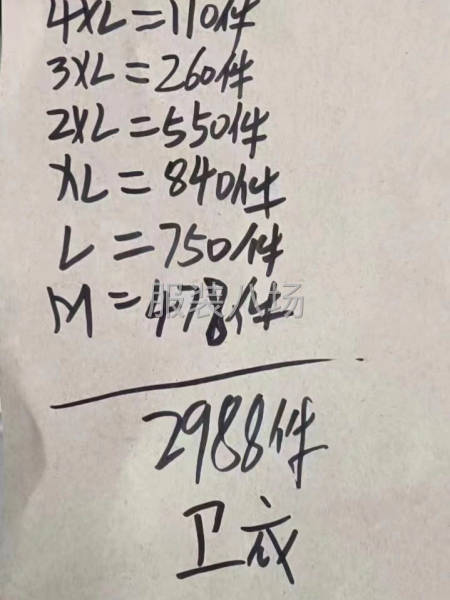 4XL=110件
3XL=260件
2XL=550件
XL=840件
L=750件
M=478件
服装人场
2988件
卫衣